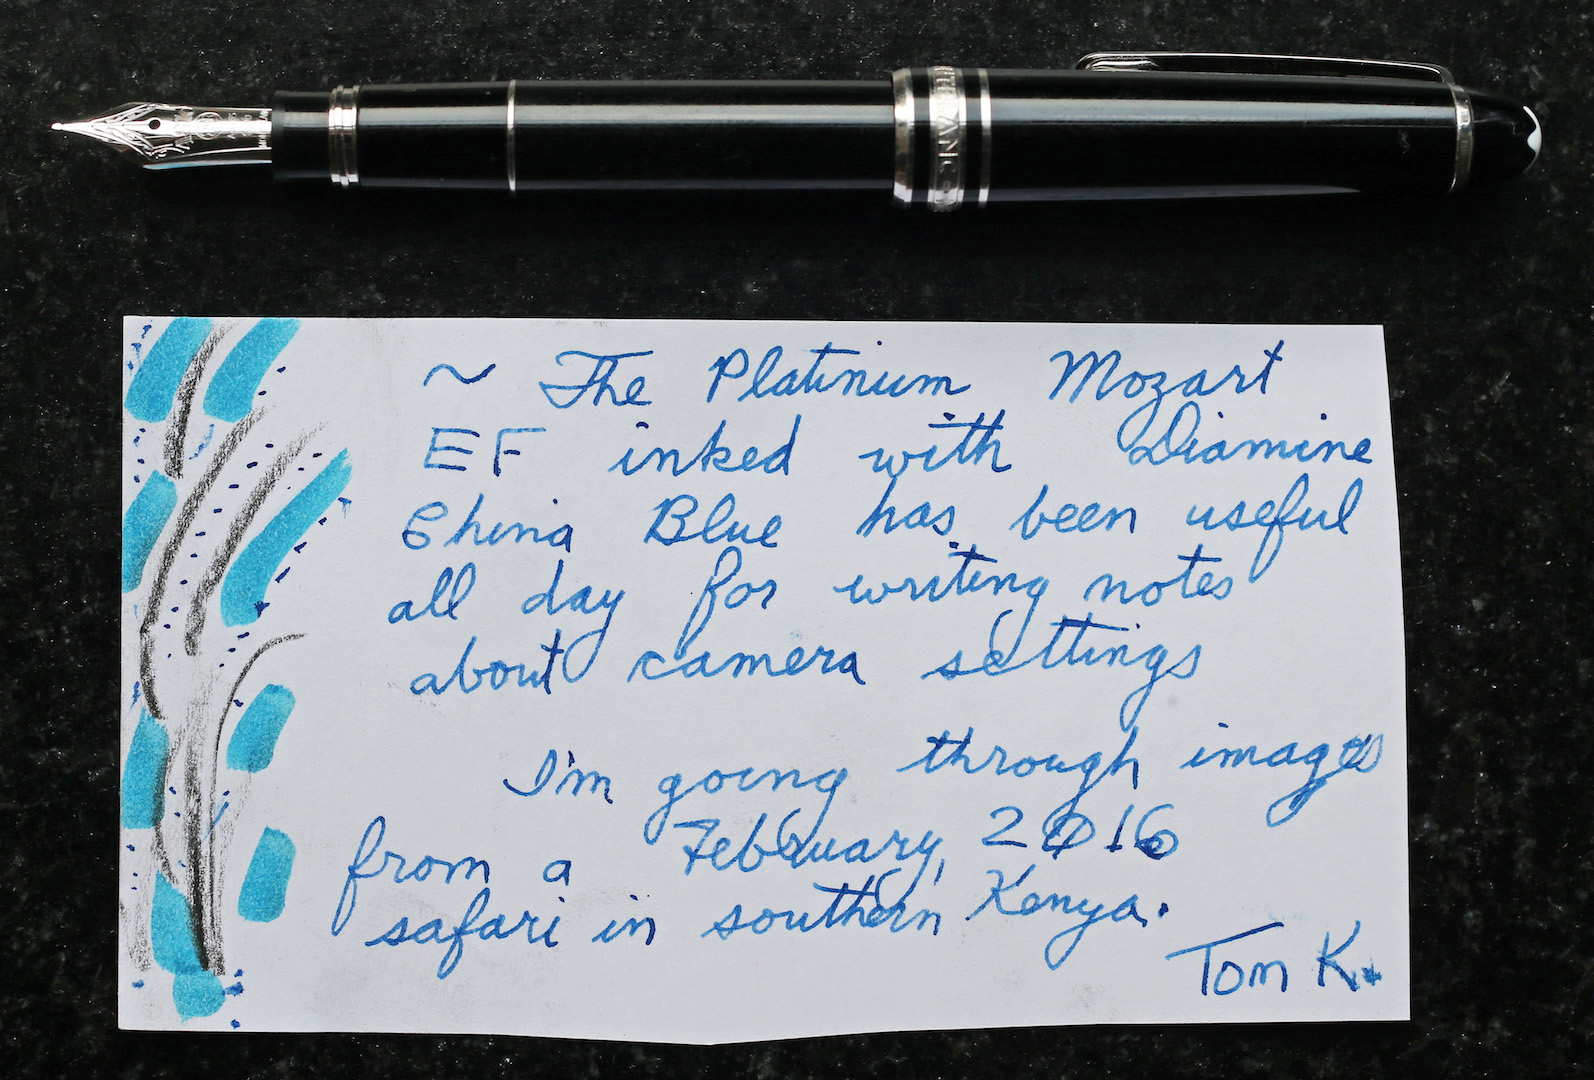 ~ The Platinum Mozart
EF inked with Diamine
China Blue has been useful
all day for writing notes
about camera settings
I'm going through images
from a February, 2016
safari in southern Kenya.
Tom K.